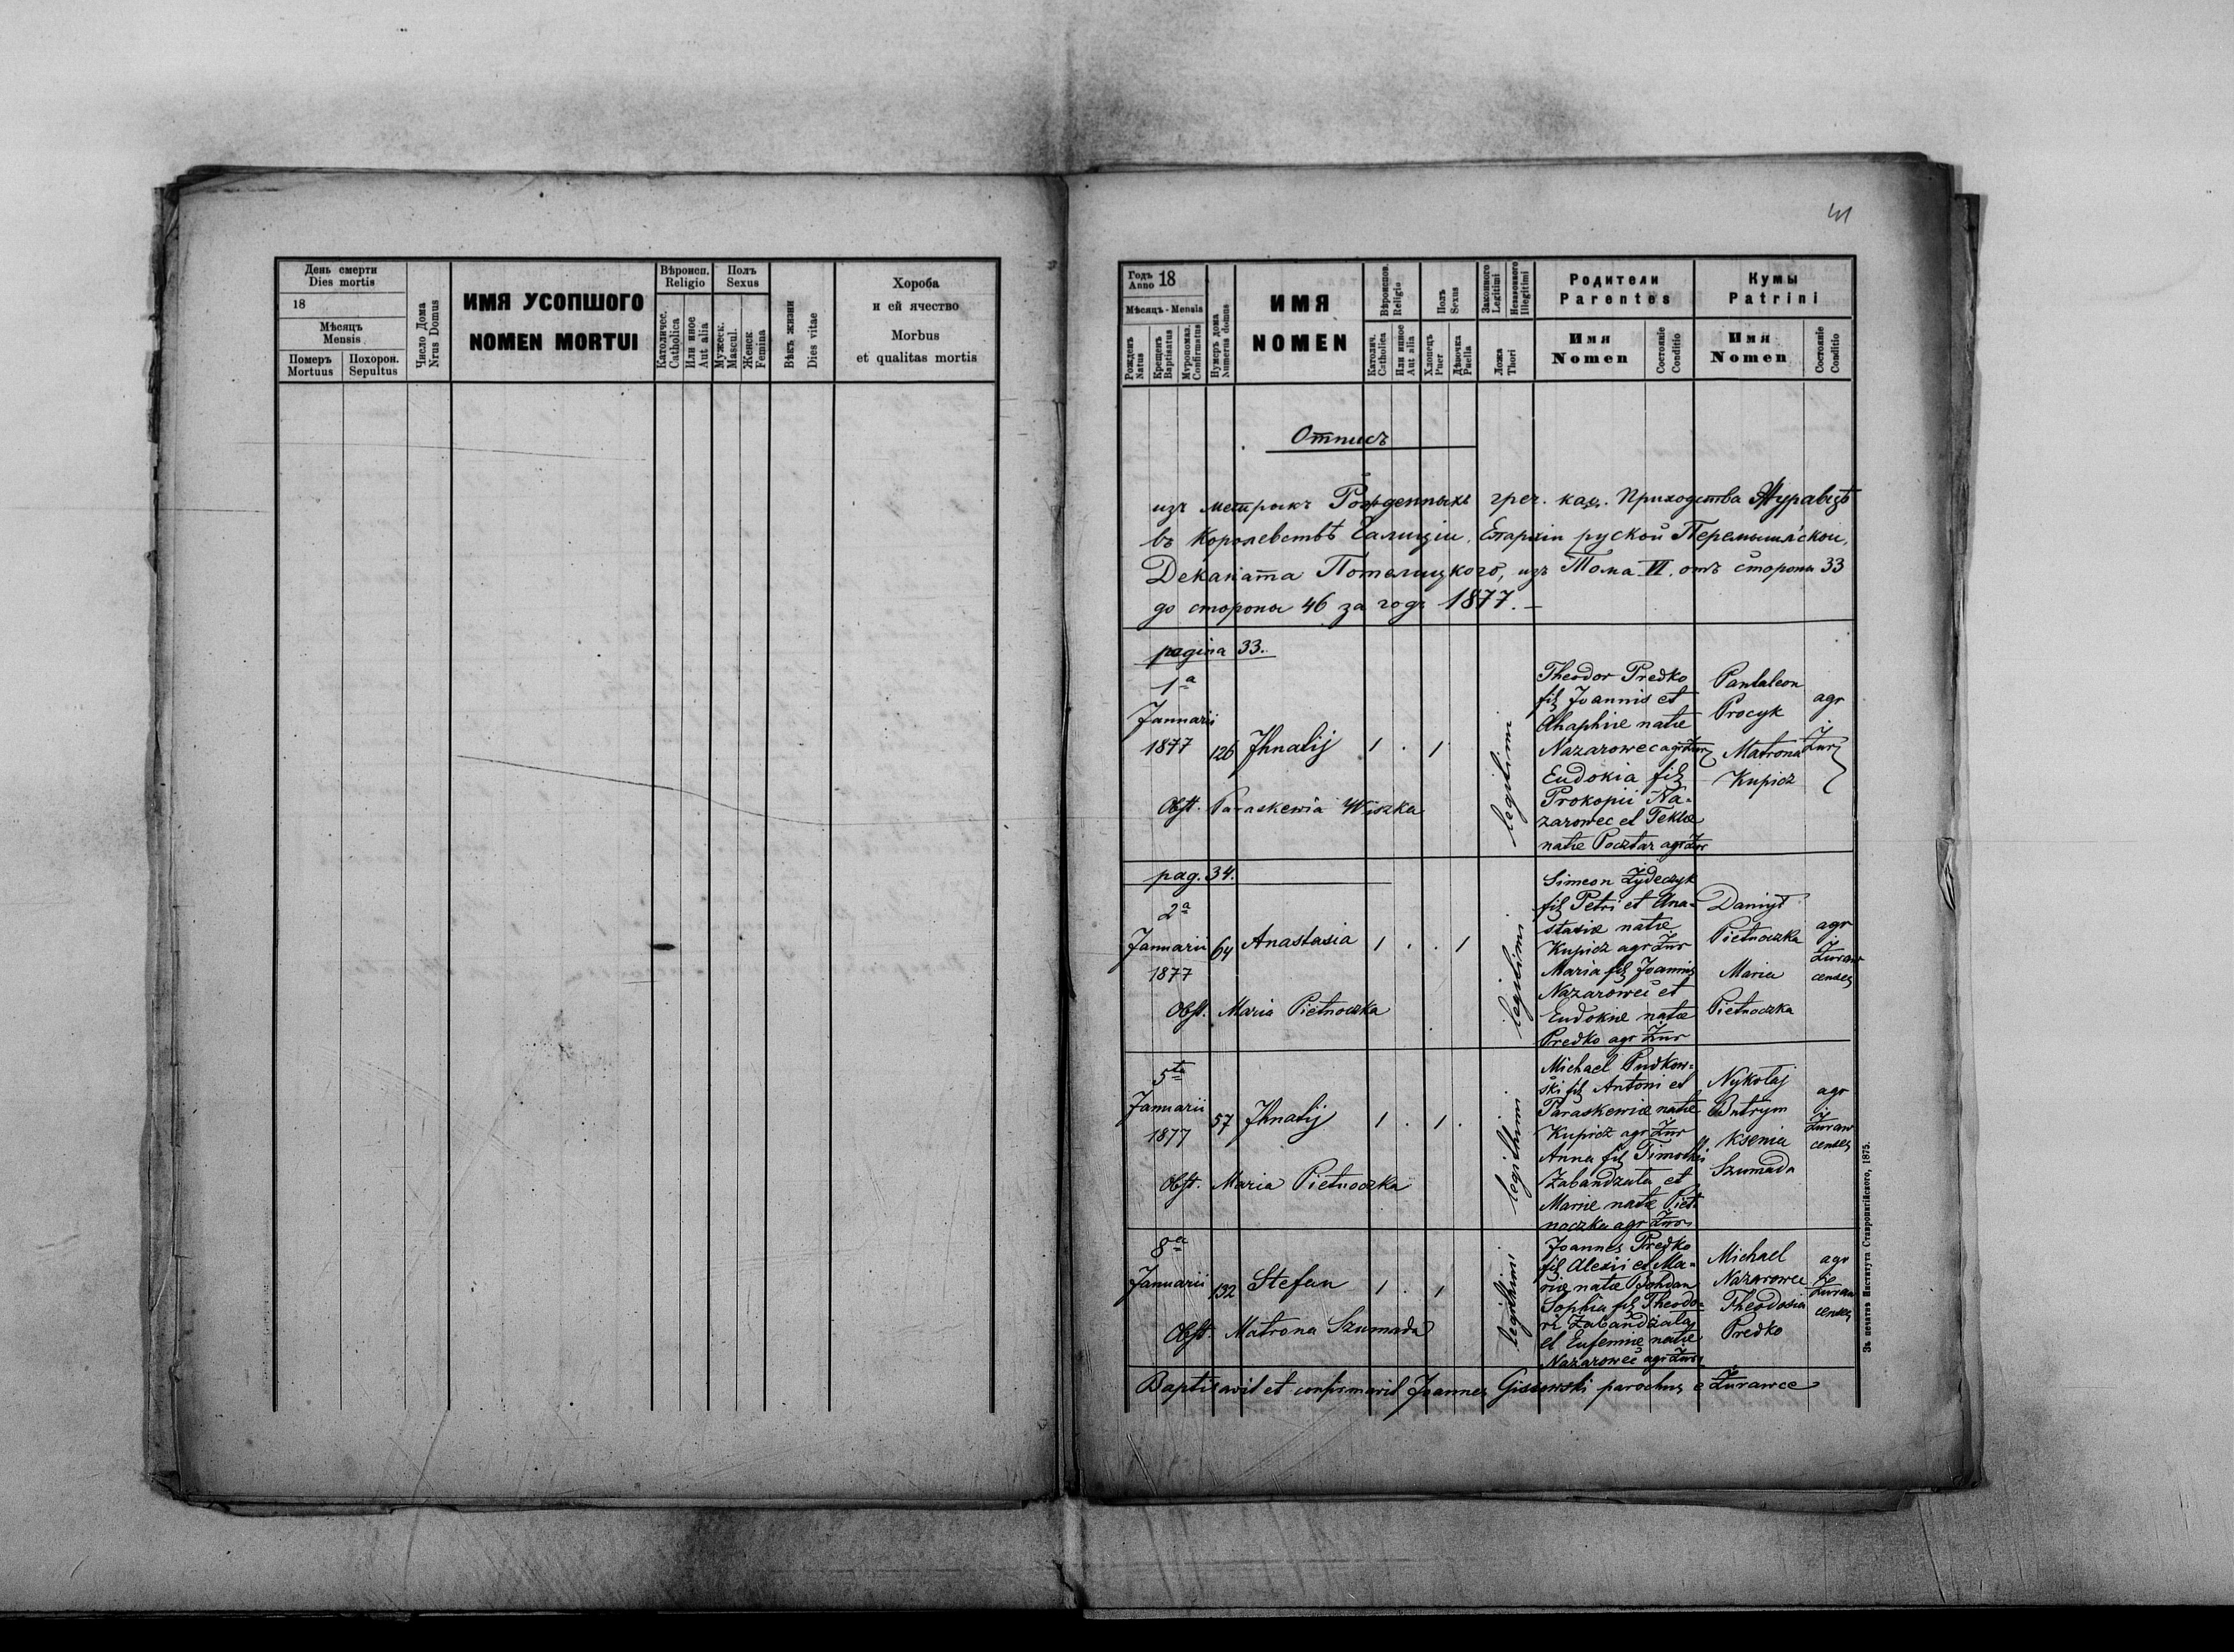 День смерти
Dies mortis
18
Мѣсяцъ
Mensis
Померъ
Mortuus
Похорон.
Sepultus
Число Дома
Nrus Domus
ИМЯ УСОПШОГО
NOMEN MORTUI
Вѣроисп.
Religio
Католичес.
Catholica
Или иное
Aut alia
Полъ
Sexus
Мужеск.
Mascul.
Женск.
Femina
Вѣкъ жизни
Dies vitae
Хороба
и ей ячество
Morbus
et qualitas mortis
41
Годъ 18
Anno
Мѣсяцъ - Mensis
Рожденъ
Natus
Крещенъ
Baptisatus
Муропомаз.
Confirmatus
Нумеръ дома
Numerus domus
ИМЯ
NOMEN
Вѣроиспов.
Religio
Католич.
Catholica
Или иное
Aut alia
Полъ
Sexus
Хлопецъ
Puer
Дѣвочка
Puella
Законного
Legitimi
Незаконного
Illegitimi
Ложа
Thori
Родители
Parentes
Имя
Nomen
Состоянiе
Conditio
Кумы
Patrini
Имя
Nomen
Состоянiе
Conditio
Отписъ
изъ метрикъ Рожденныхъ греч. каѳ. Приходства Журавцѣ
въ Королевствѣ Галиціи, Епархіи руской Перемышльской,
Деканата Потелицкого, изъ Тома VI. отъ стороны 33
до стороны 46 за годъ 1877. —
pagina 33.
1a
Januarii
1877 126 Ihnatij 1 . 1
Obst. Paraskewia Wiszka
legitimi
Theodor Predko
fil Joannis et
Ahaphiæ natæ
Nazarowec agr Żur
Eudokia fil
Prokopii Na-
zarowec et Teklæ
natæ Pocztar agr Żur
Pantaleon
Procyk
Matrona
Kupicz
agr
Żur
pag. 34.
2a
Januarii 64 Anastasia 1 . . 1
1877
Obst. Maria Pietnoczka
legitimi
Simeon Żydeczyk
fil Petri et Ana-
stasiæ natæ
Kupicz agr Żur
Maria fil Joannis
Nazarowec et
Eudokiæ natæ
Predko agr Żur
Daniył
Pietnoczka
Maria
Pietnoczka
agr
Żuraw
censes
5ta
Januarii 57 Ihnatij 1 . 1 .
1877
Obst. Maria Pietnoczka
legithimi
Michael Pudkow-
ski fil Antoni et
Paraskewiæ natæ
Kupicz agr Żur
Anna fil Timothei
Zabandzała et
Mariæ natæ Piet
noczka agr Żur
Nykołaj
Butrym
Ksenia
Szumada
agr
Żuraw
censes
8a
Januarii 132 Stefan 1 . 1
Obst. Matrona Szumada
legithimi
Joannes Predko
fil Alexii et Ma-
riæ natæ Bohdan
Sophia fil Theodo-
ri Zabandzała
et Eufemiæ natæ
Nazarowec agr Żur
Michael
Nazarowec
Theodosia
Predko
agr
Żuraw
censes
Baptisavit et confirmavit Joannes Gissowski parochus e Żurawce
Зъ печатнѣ Института Ставропигійского, 1875.